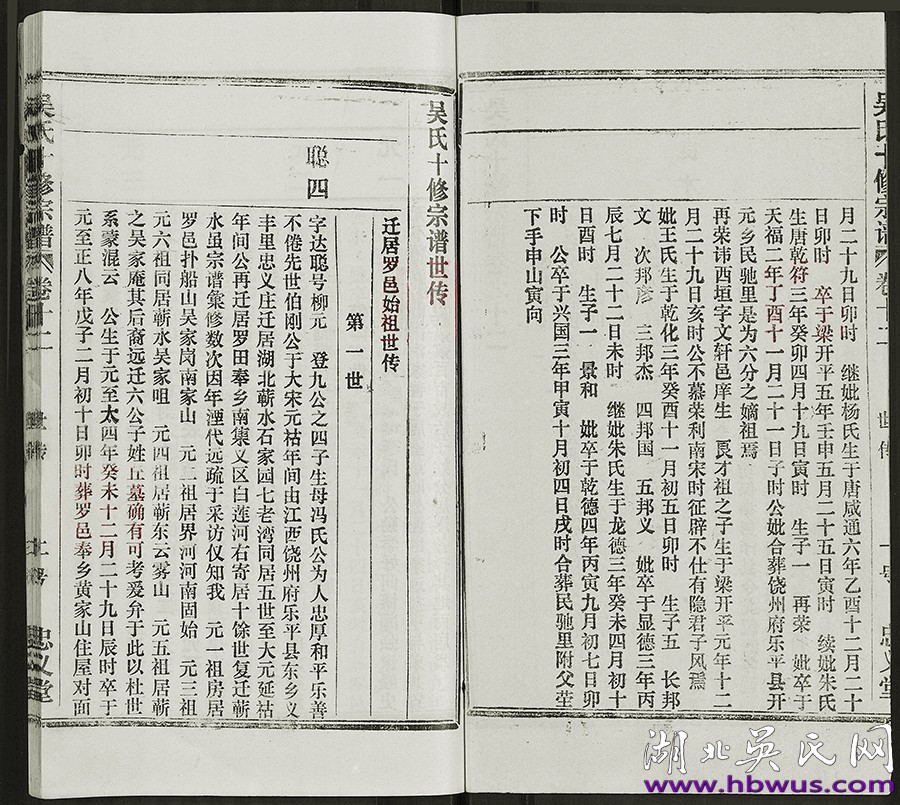 吴氏十修宗谱 卷十二 世传 一号 忠义堂
月二十九日卯时 继妣杨氏生于唐咸通六年乙酉十二月二十
日卯时 卒于梁开平五年壬申五月二十五日寅时 续妣朱氏
生唐乾符三年癸卯四月十九日寅时 生子一 再荣 妣卒于
天福二年丁酉十一月二十一日子时公妣合葬饶州府乐平县开
元乡民驰里是为六分之嫡祖焉
再荣讳西垣字文轩邑庠生 良才祖之子生于梁开平元年十二
月二十九日亥时公不慕荣利南宋时征辟不仕有隐君子风焉
妣王氏生于乾化三年癸酉十一月初五日卯时 生子五 长邦
文 次邦彦 三邦杰 四邦国 五邦义 妣卒于显德三年丙
辰七月二十二日未时 继妣朱氏生于龙德三年癸未四月初十
日酉时 生子一 景和 妣卒于乾德四年丙寅九月初七日卯
时 公卒于兴国三年甲寅十月初四日戌时合葬民驰里附父茔
下手申山寅向
吴氏十修宗谱世传
迁居罗邑始祖世传
第一世
聪四
字达聪号柳元 登九公之四子生母冯氏公为人忠厚和平乐善
不倦先世伯刚公于大宋元祜年间由江西饶州府乐平县东乡义
丰里忠义庄迁居湖北蕲水石家园七老湾同居五世至大元延祜
年间公再迁居罗田奉乡南䕫义区白莲河右寄居十馀世复迁蕲
水虽宗谱彙修数次因年湮代远疏于采访仅知我 元一祖房居
罗邑扑船山吴家岗南家山 元二祖居界河河南固始 元三祖
元六祖同居蕲水吴家咀 元四祖居蕲东云雾山 元五祖居蕲
之吴家庵其后裔远迁六公子姓丘墓确有可考爰弁于此以杜世
系蒙混云 公生于元至太四年癸未十二月二十九日辰时卒于
元至正八年戊子二月初十日卯时葬罗邑奉乡黄家山住屋对面
吴氏十修宗谱 卷十二 世传 二号 忠义堂
湖北吴氏网
www.hbwus.com